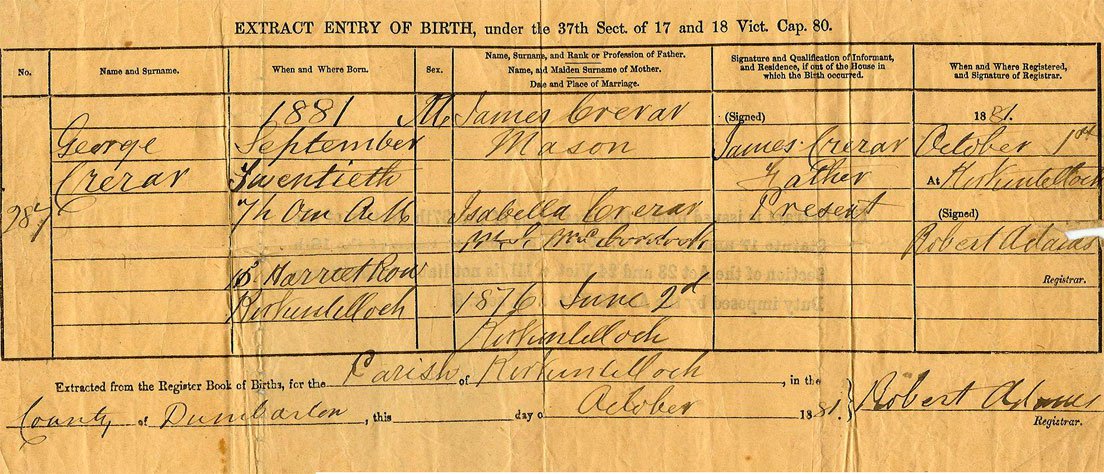 EXTRACT ENTRY OF BIRTH, under the 37th Sect. of 17 and 18 Vict. Cap. 80.
No.
Name and Surname.
When and Where Born.
Sex.
Name, Surname, and Rank or Profession of Father.
Name, and Maiden Surname of Mother.
Date and Place of Marriage.
Signature and Qualification of Informant,
and Residence, if out of the House in
which the Birth occurred.
When and Where Registered,
and Signature of Registrar.
287
George
Crerar
1881
September
Twentieth
7h 0m A.M
Harriet Row
Kirkintilloch
M.
James Crerar
Mason
Isabella Crerar
M.S.
1876 June 2nd
Kirkintilloch
(Signed)
James Crerar
Father
Present
1881.
October 1st
At Kirkintilloch
(Signed)
Robert Adams
Registrar.
Extracted from the Register Book of Births, for the Parish of Kirkintilloch, in the
County of Dumbarton, this day o October 1881.
Robert Adams
Registrar.